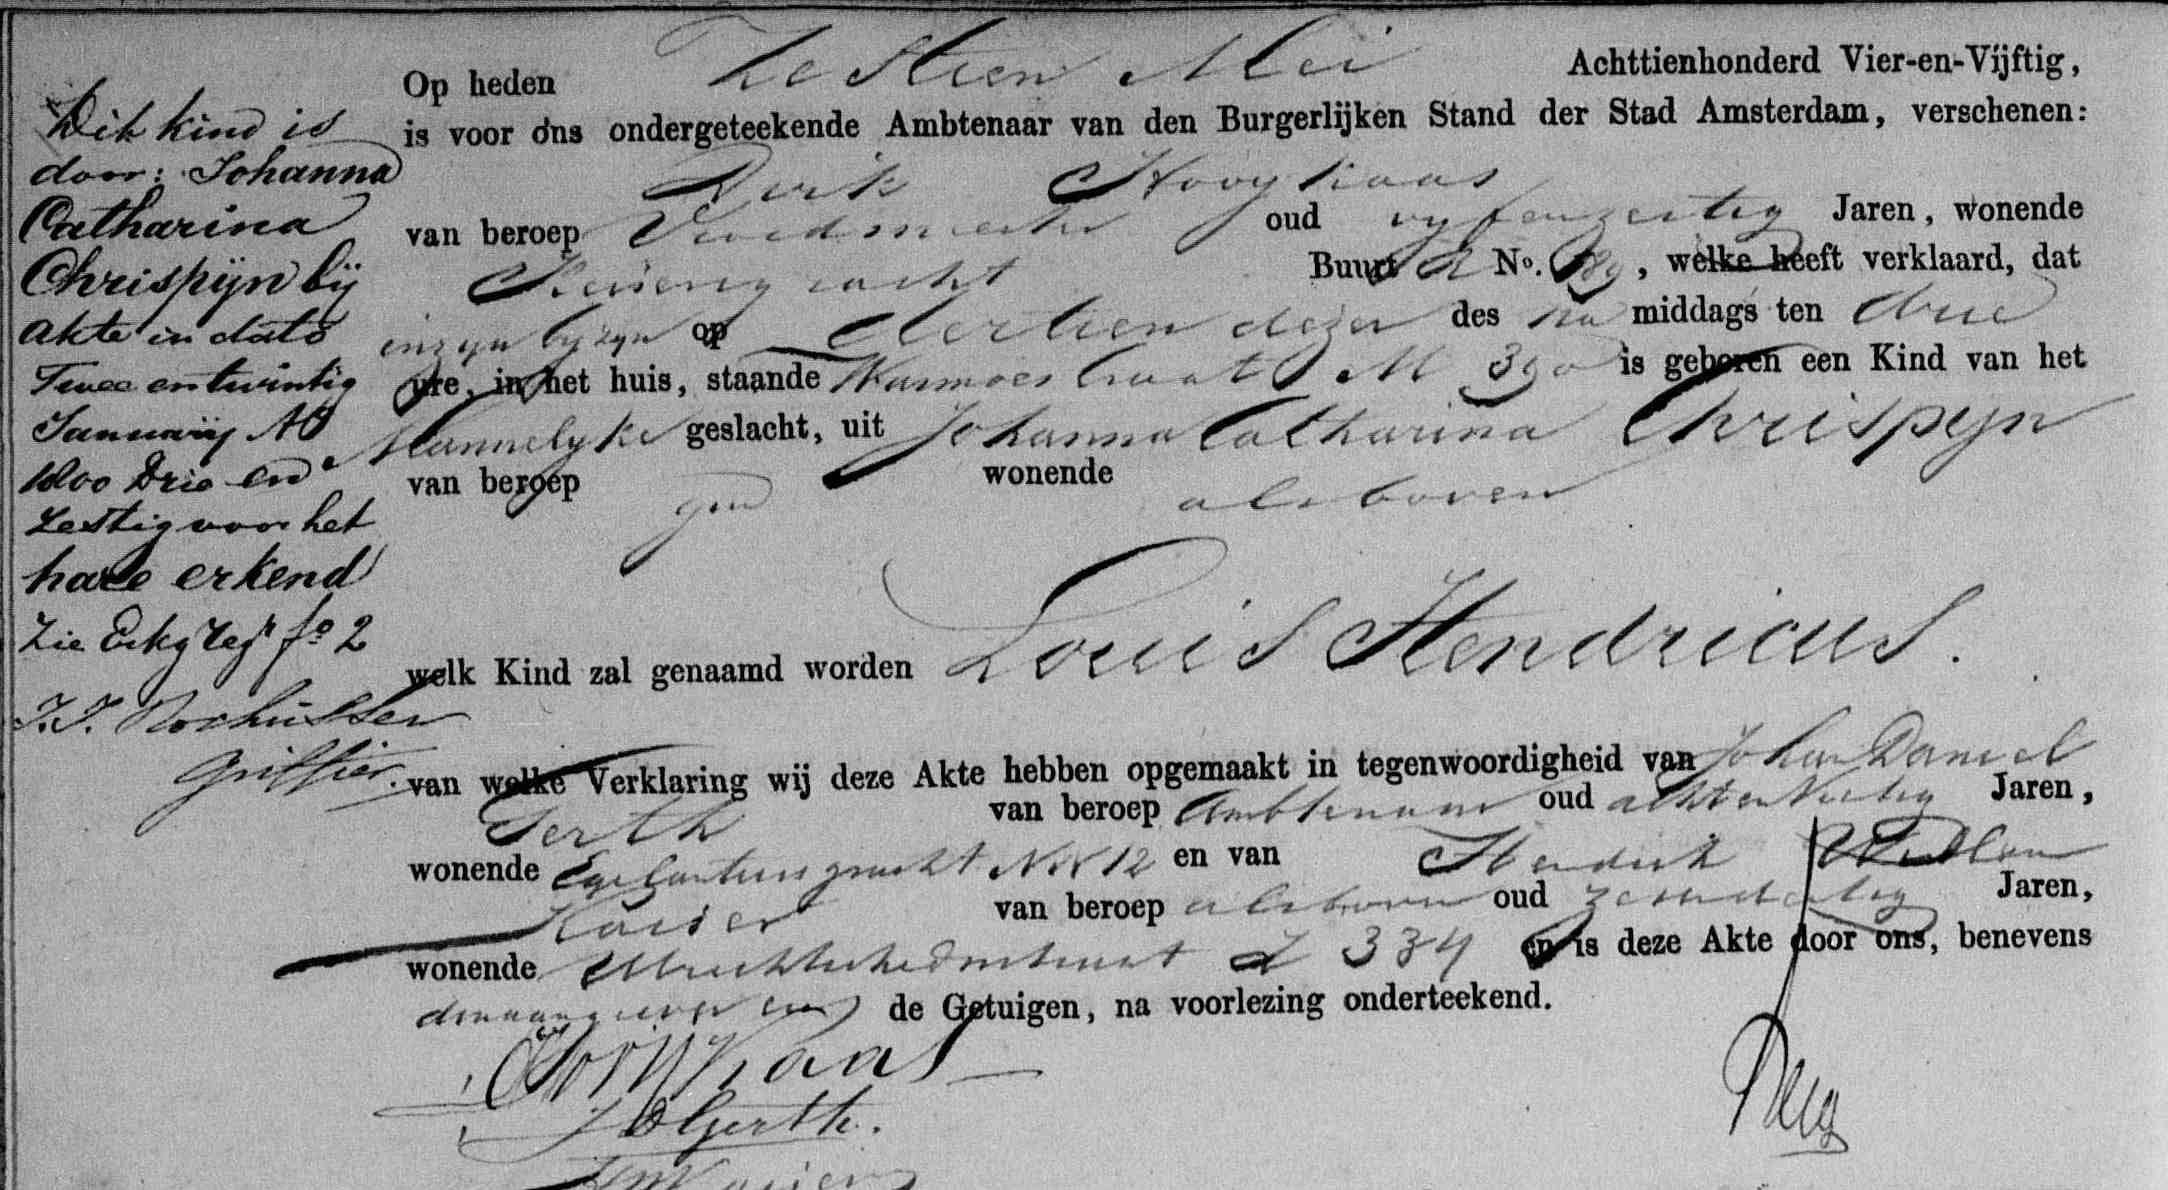 Dit kind is
door: Johanna
Catharina
Chrispijn bij
akte in dato
Twee entwintig
Januarij Ao
1800 Drie en
Zestig voor het
hare erkend
Zie Erkg regr fo 2
J.J. Rochussen
Griffier.
Op heden Zestien Mei Achttienhonderd Vier-en-Vijftig,
is voor ons ondergeteekende Ambtenaar van den Burgerlijken Stand der Stad Amsterdam, verschenen:
Dirk Hooykaas
van beroep Vroedmeester oud vyfenzestig Jaren, wonende
Keizersgracht Buurt No. , welke heeft verklaard, dat
inzyn byzyn op dertien dezer des na middags ten drie
ure, in het huis, staande Warmoesstraat M 390 is geboren een Kind van het
Mannelyke geslacht, uit Johanna Catharina Chrispyn
van beroep geen wonende als boven
welk Kind zal genaamd worden Louis Hendricus.
van welke Verklaring wij deze Akte hebben opgemaakt in tegenwoordigheid van Johan Daniel
Gerth van beroep Ambtenaar oud Jaren,
wonende Egelantiersgracht NN 12 en van Hendrik Willem
Kaiser van beroep als boven oud Jaren,
wonende Utrechtschedwarsstraat Z 334 en is deze Akte door ons, benevens
den aangever en de Getuigen, na voorlezing onderteekend.
Hooykaas
JD Gerth.